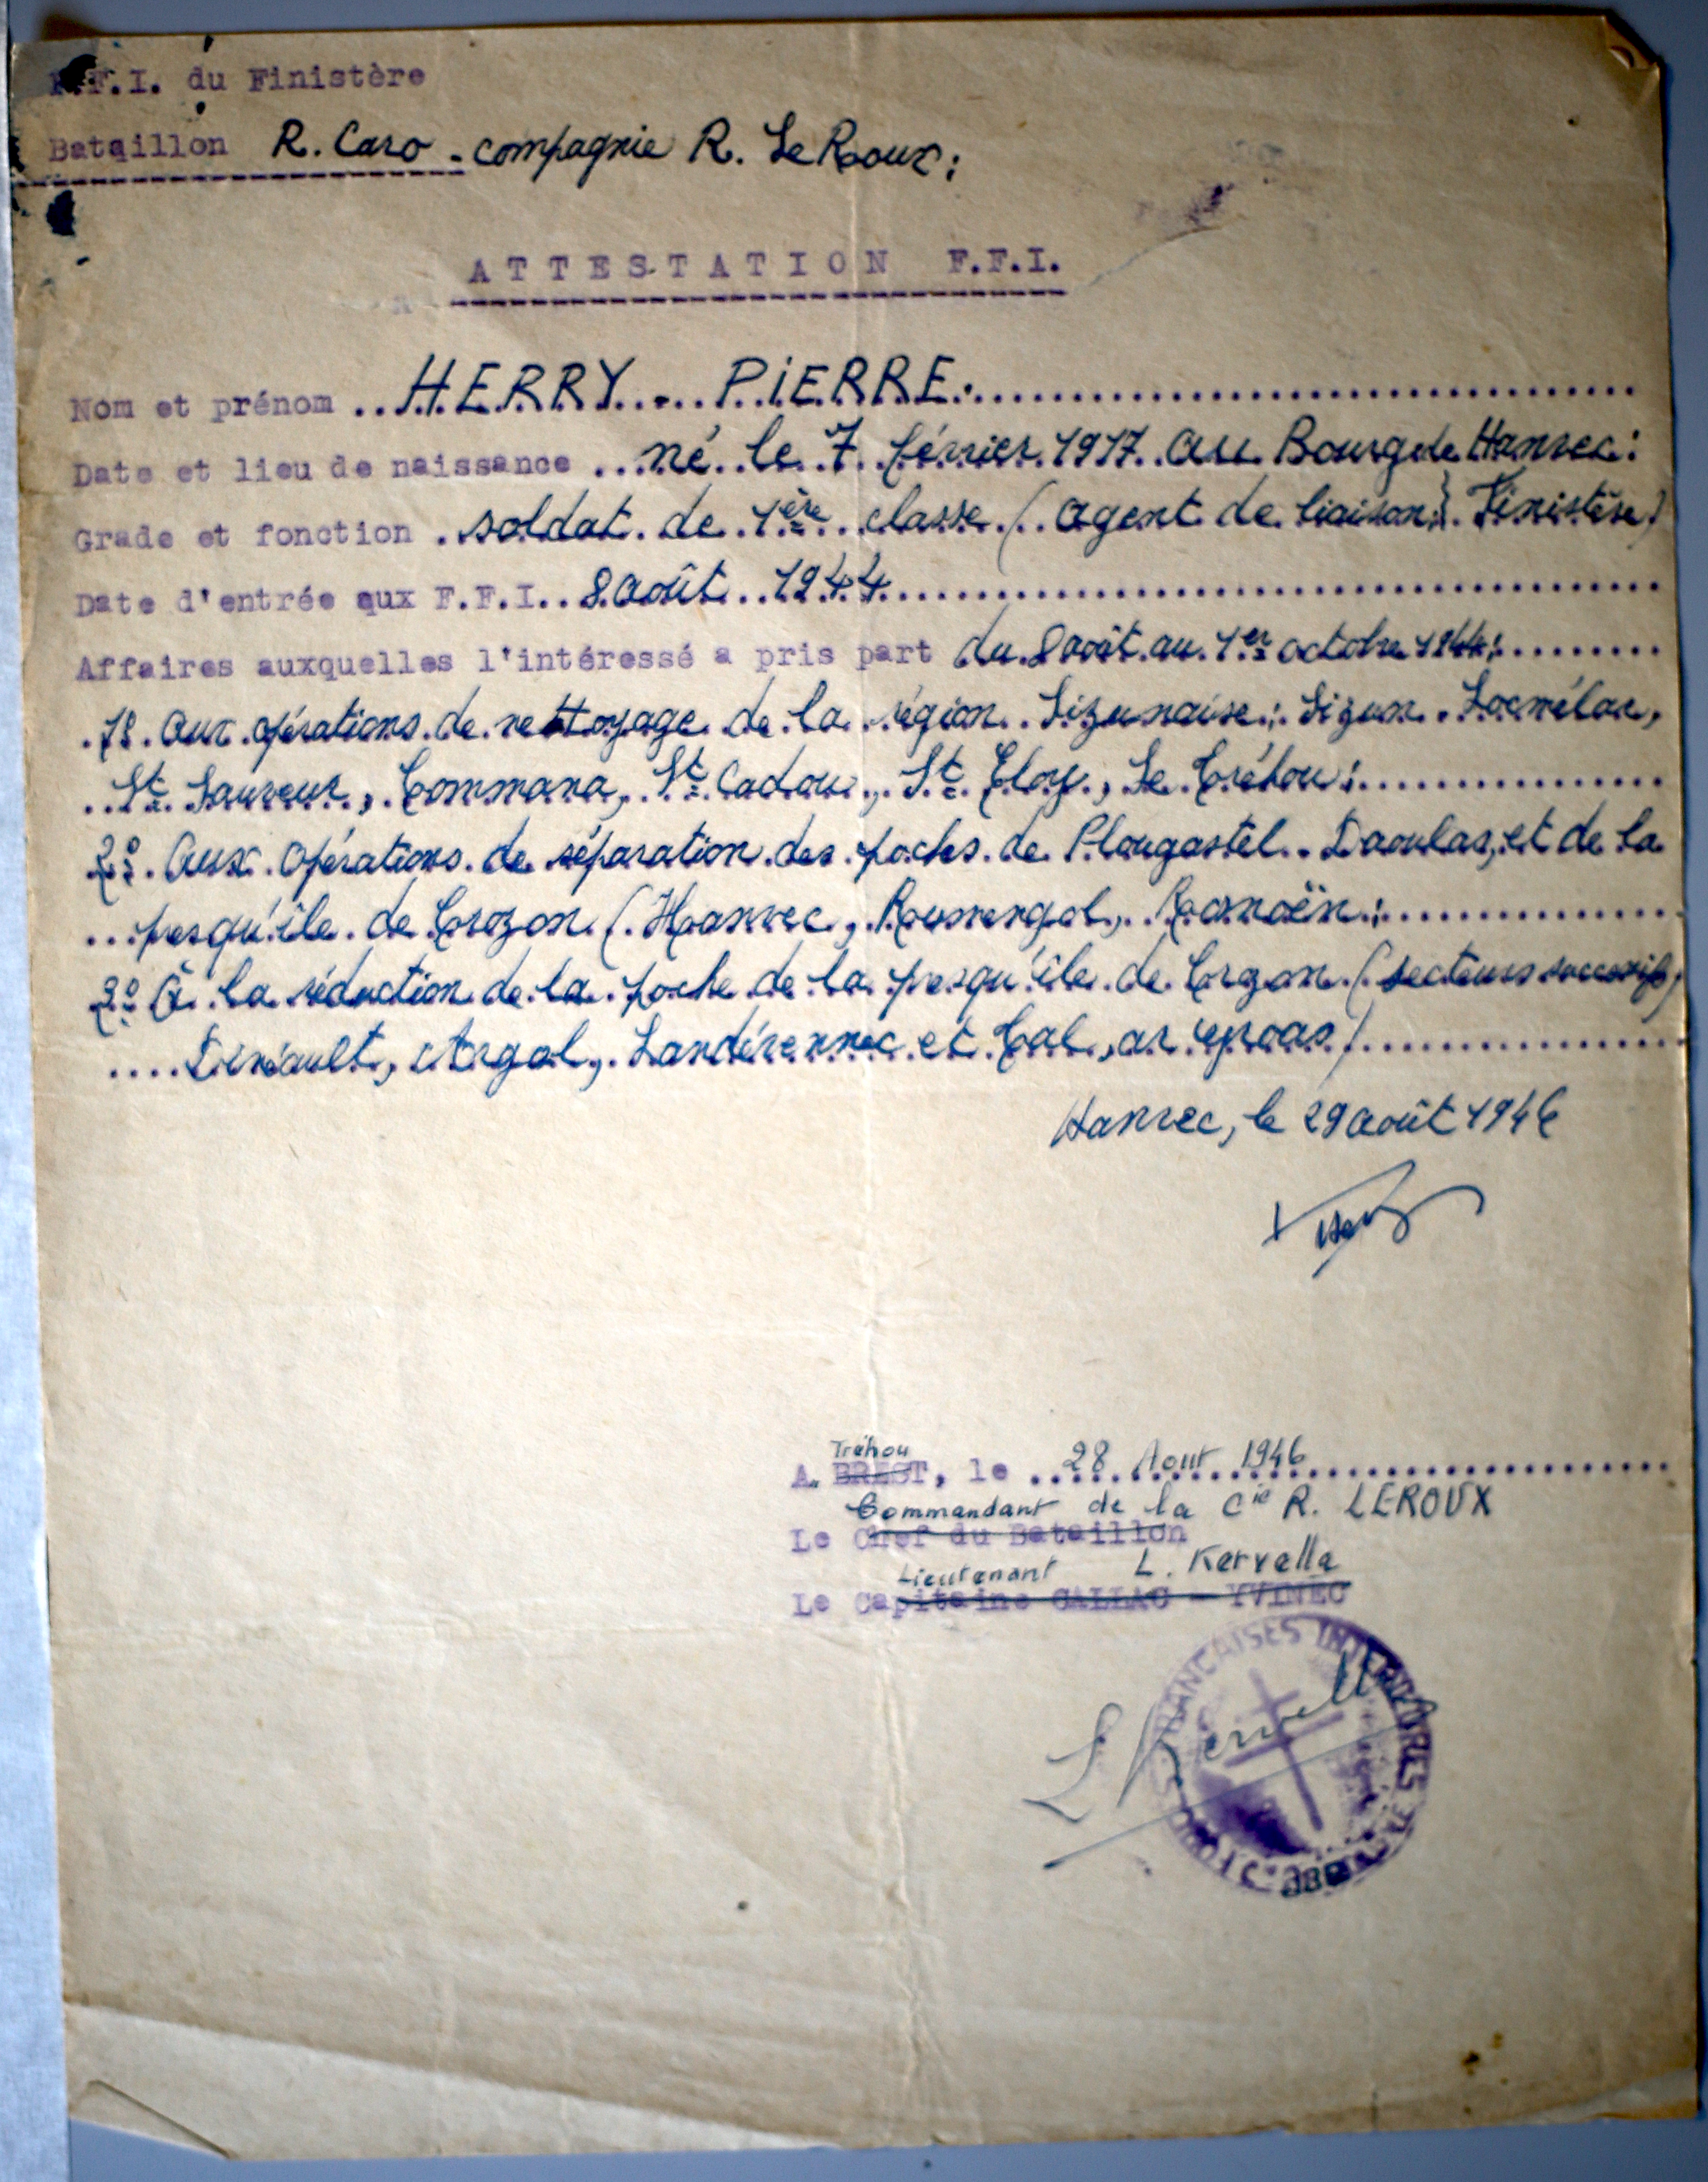 F.F.I. du Finistère
Bataillon R. Caro - compagnie R. Le Roux;
ATTESTATION F.F.I.
Nom et prénom HERRY - PIERRE.
Date et lieu de naissance né le 7 février 1917 au Bourg de Hanvec:
Grade et fonction soldat de 1ère classe (agent de liaison) Finistère)
Date d'entrée aux F.F.I. 8 août 1944
Affaires auxquelles l'intéressé a pris part du 8 août au 1er octobre 1944:
1º Aux opérations de nettoyage de la région Sizunaise: Sizun, Locmélar,
St Sauveur, Commana, St Cadou, St Eloy, Le Tréhou;
2º Aux opérations de séparation des poches de Plougastel-Daoulas, et de la
presqu'île de Crozon (Hanvec, Rosnoën;
3º A la réduction de la poche de la presqu'île de Crozon (secteurs successifs)
Dinéault, Argol, Landévennec et Tal, ar groas)
Hanvec, le 29 août 1946
Tréhou
A BREST, le 28 Aout 1946
Commandant de la Cie R. LEROUX
Le Chef du Bataillon
Lieutenant L. Kervella
Le Capitaine GALLAC - YVINEC
FRANCAISES INTERIEURES
L Kervella